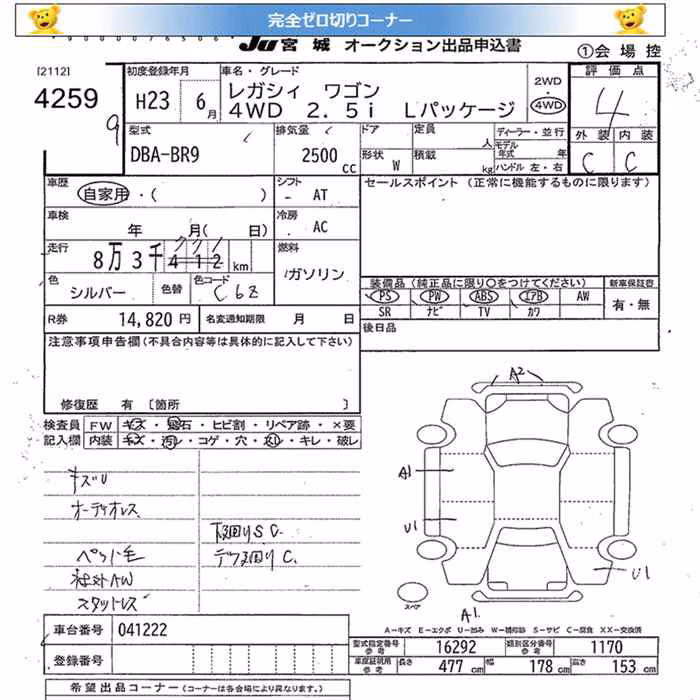 完全ゼロ切りコーナー
JU 宮城 オークション出品申込書
①会場控
[2112]
4259
9
初度登録年月
H23 6月
車名・グレード
レガシィ ワゴン
4WD 2.5i Lパッケージ
2WD
・
4WD
評価点
4
外装 内装
C C
型式
DBA-BR9
排気量
2500 cc
ドア
形状 W
定員 人
積載 kg
ディーラー・並行
モデル年式 年
ハンドル 左・右
車歴
自家用・( )
シフト
- AT
セールスポイント (正常に機能するものに限ります)
車検
年 月( 日)
冷房
AC
走行
8万3千412km
771
燃料
ガソリン
色
シルバー
色替
色コード
C6Z
装備品(純正品に限り○をつけてください)
新車保証書
PS PW ABS エアB AW
SR ナビ TV カワ
有・無
R券 14,820円
名変通知期限 月 日
後日品
注意事項申告欄(不具合内容等は具体的に記入して下さい)
修復歴 有 〔箇所 〕
検査員 FW キズ・飛石・ヒビ割・リペア跡・×要
記入欄 内装 キズ・汚レ・コゲ・穴・スレ・キレ・破レ
キズU
オーディオレス
ペット毛
社外AW
スタットレス
下廻りS C.
デフ廻りC.
A2
A1
U1
U1
A1
スペア
A-キズ E-エクボ U-凹み W-補修跡 S-サビ C-腐食 XX-交換済
車台番号 041222
登録番号
型式指定番号参考 16292 類別区分番号参考 1170
車庫証明用参考 長さ 477cm 幅 178cm 高さ 153cm
希望出品コーナー(コーナーは各会場により異なります。)